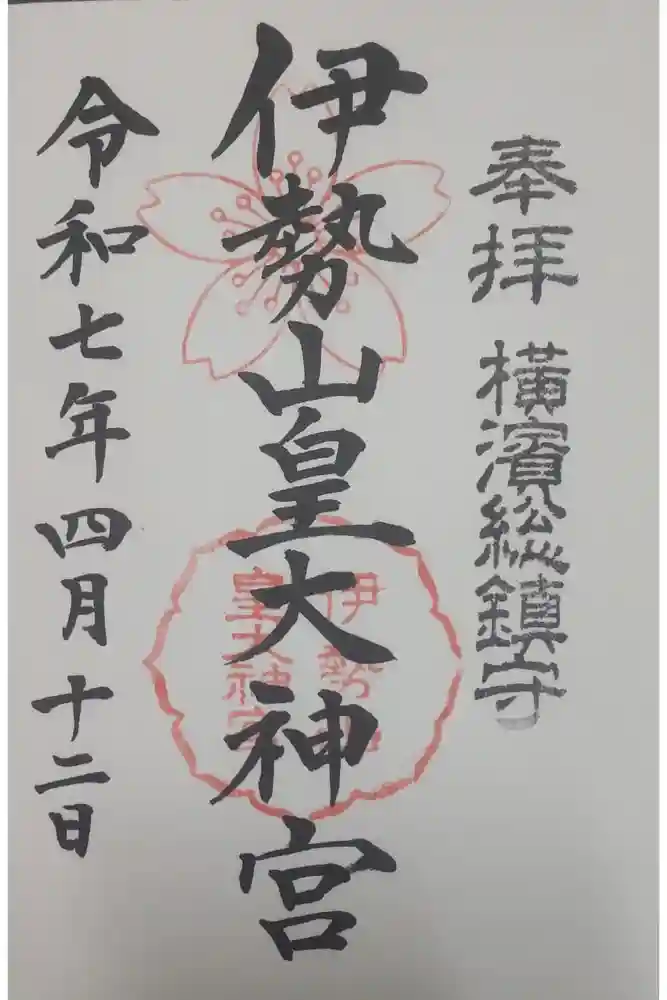 奉拝 横濱総鎮守
伊勢山皇大神宮
伊勢山
皇大神宮
令和七年四月十二日